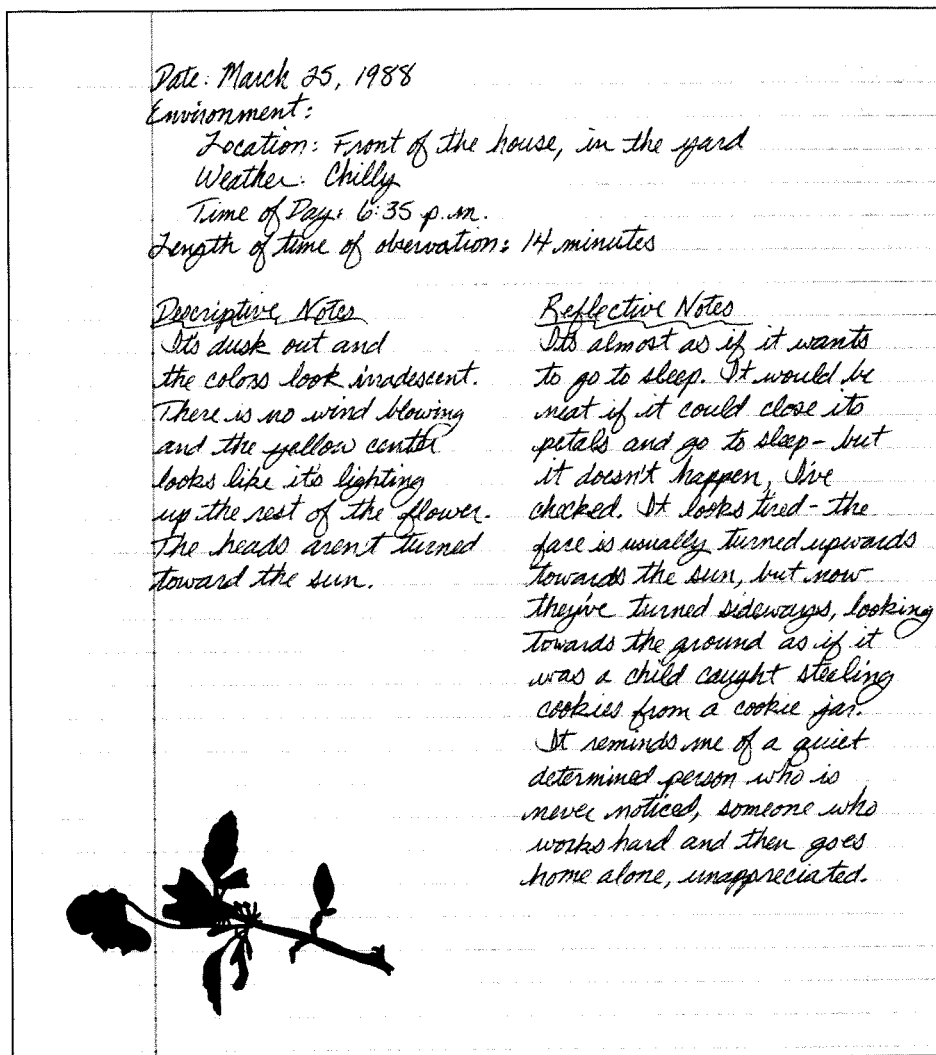 Date: March 25, 1988
Environment:
Location: Front of the house, in the yard
Weather: Chilly
Time of Day: 6:35 p.m.
Length of time of observation: 14 minutes
Descriptive Notes
It's dusk out and
the colors look irradescent.
There is no wind blowing
and the yellow center
looks like it's lighting
up the rest of the flower.
The heads aren't turned
toward the sun.
Reflective Notes
It's almost as if it wants
to go to sleep. It would be
neat if it could close its
petals and go to sleep - but
it doesn't happen, I've
checked. It looks tired - the
face is usually turned upwards
towards the sun, but now
they've turned sideways, looking
towards the ground as if it
was a child caught stealing
cookies from a cookie jar.
It reminds me of a quiet
determined person who is
never noticed, someone who
works hard and then goes
home alone, unappreciated.